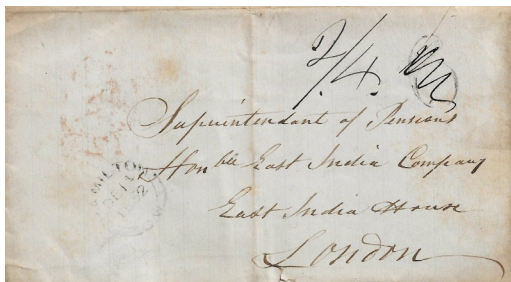 2/4.
Superintendant of Pensions
Honble East India Company
East India House
London